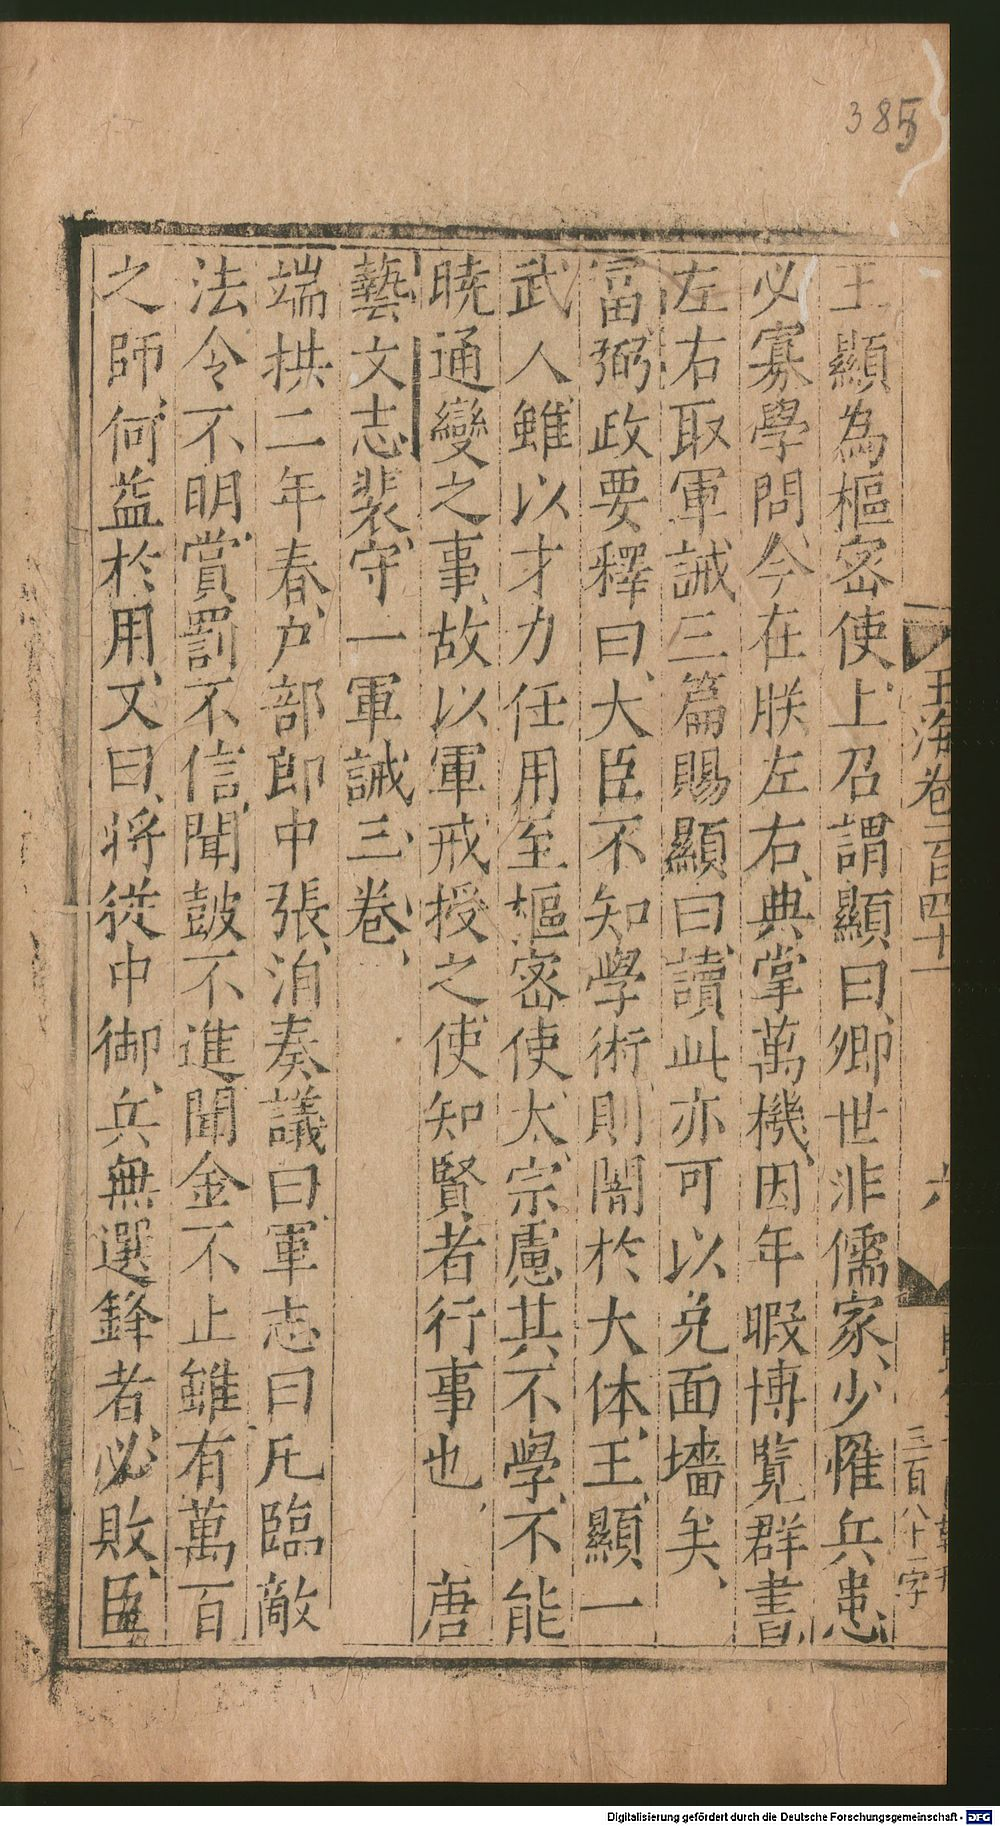 385
玉海卷一百四十一
六
三百八十一字
王顯為樞密使上召謂顯曰卿世非儒家少罹兵患
必寡學問今在朕左右典掌萬機因年暇博覽群書
左右取軍誡三篇賜顯曰讀此亦可以免面墻矣
富弼政要釋曰大臣不知學術則闇於大体王顯一
武人雖以才力任用至樞密使太宗慮其不學不能
曉通變之事故以軍戒授之使知賢者行事也 唐
藝文志裴守一軍誡三卷
端拱二年春户部郎中張洎奏議曰軍志曰凡臨敵
法令不明賞罰不信聞鼓不進聞金不止雖有萬百
之師何益於用又曰將從中御兵無選鋒者必敗臣
Digitalisierung gefördert durch die Deutsche Forschungsgemeinschaft - DFG